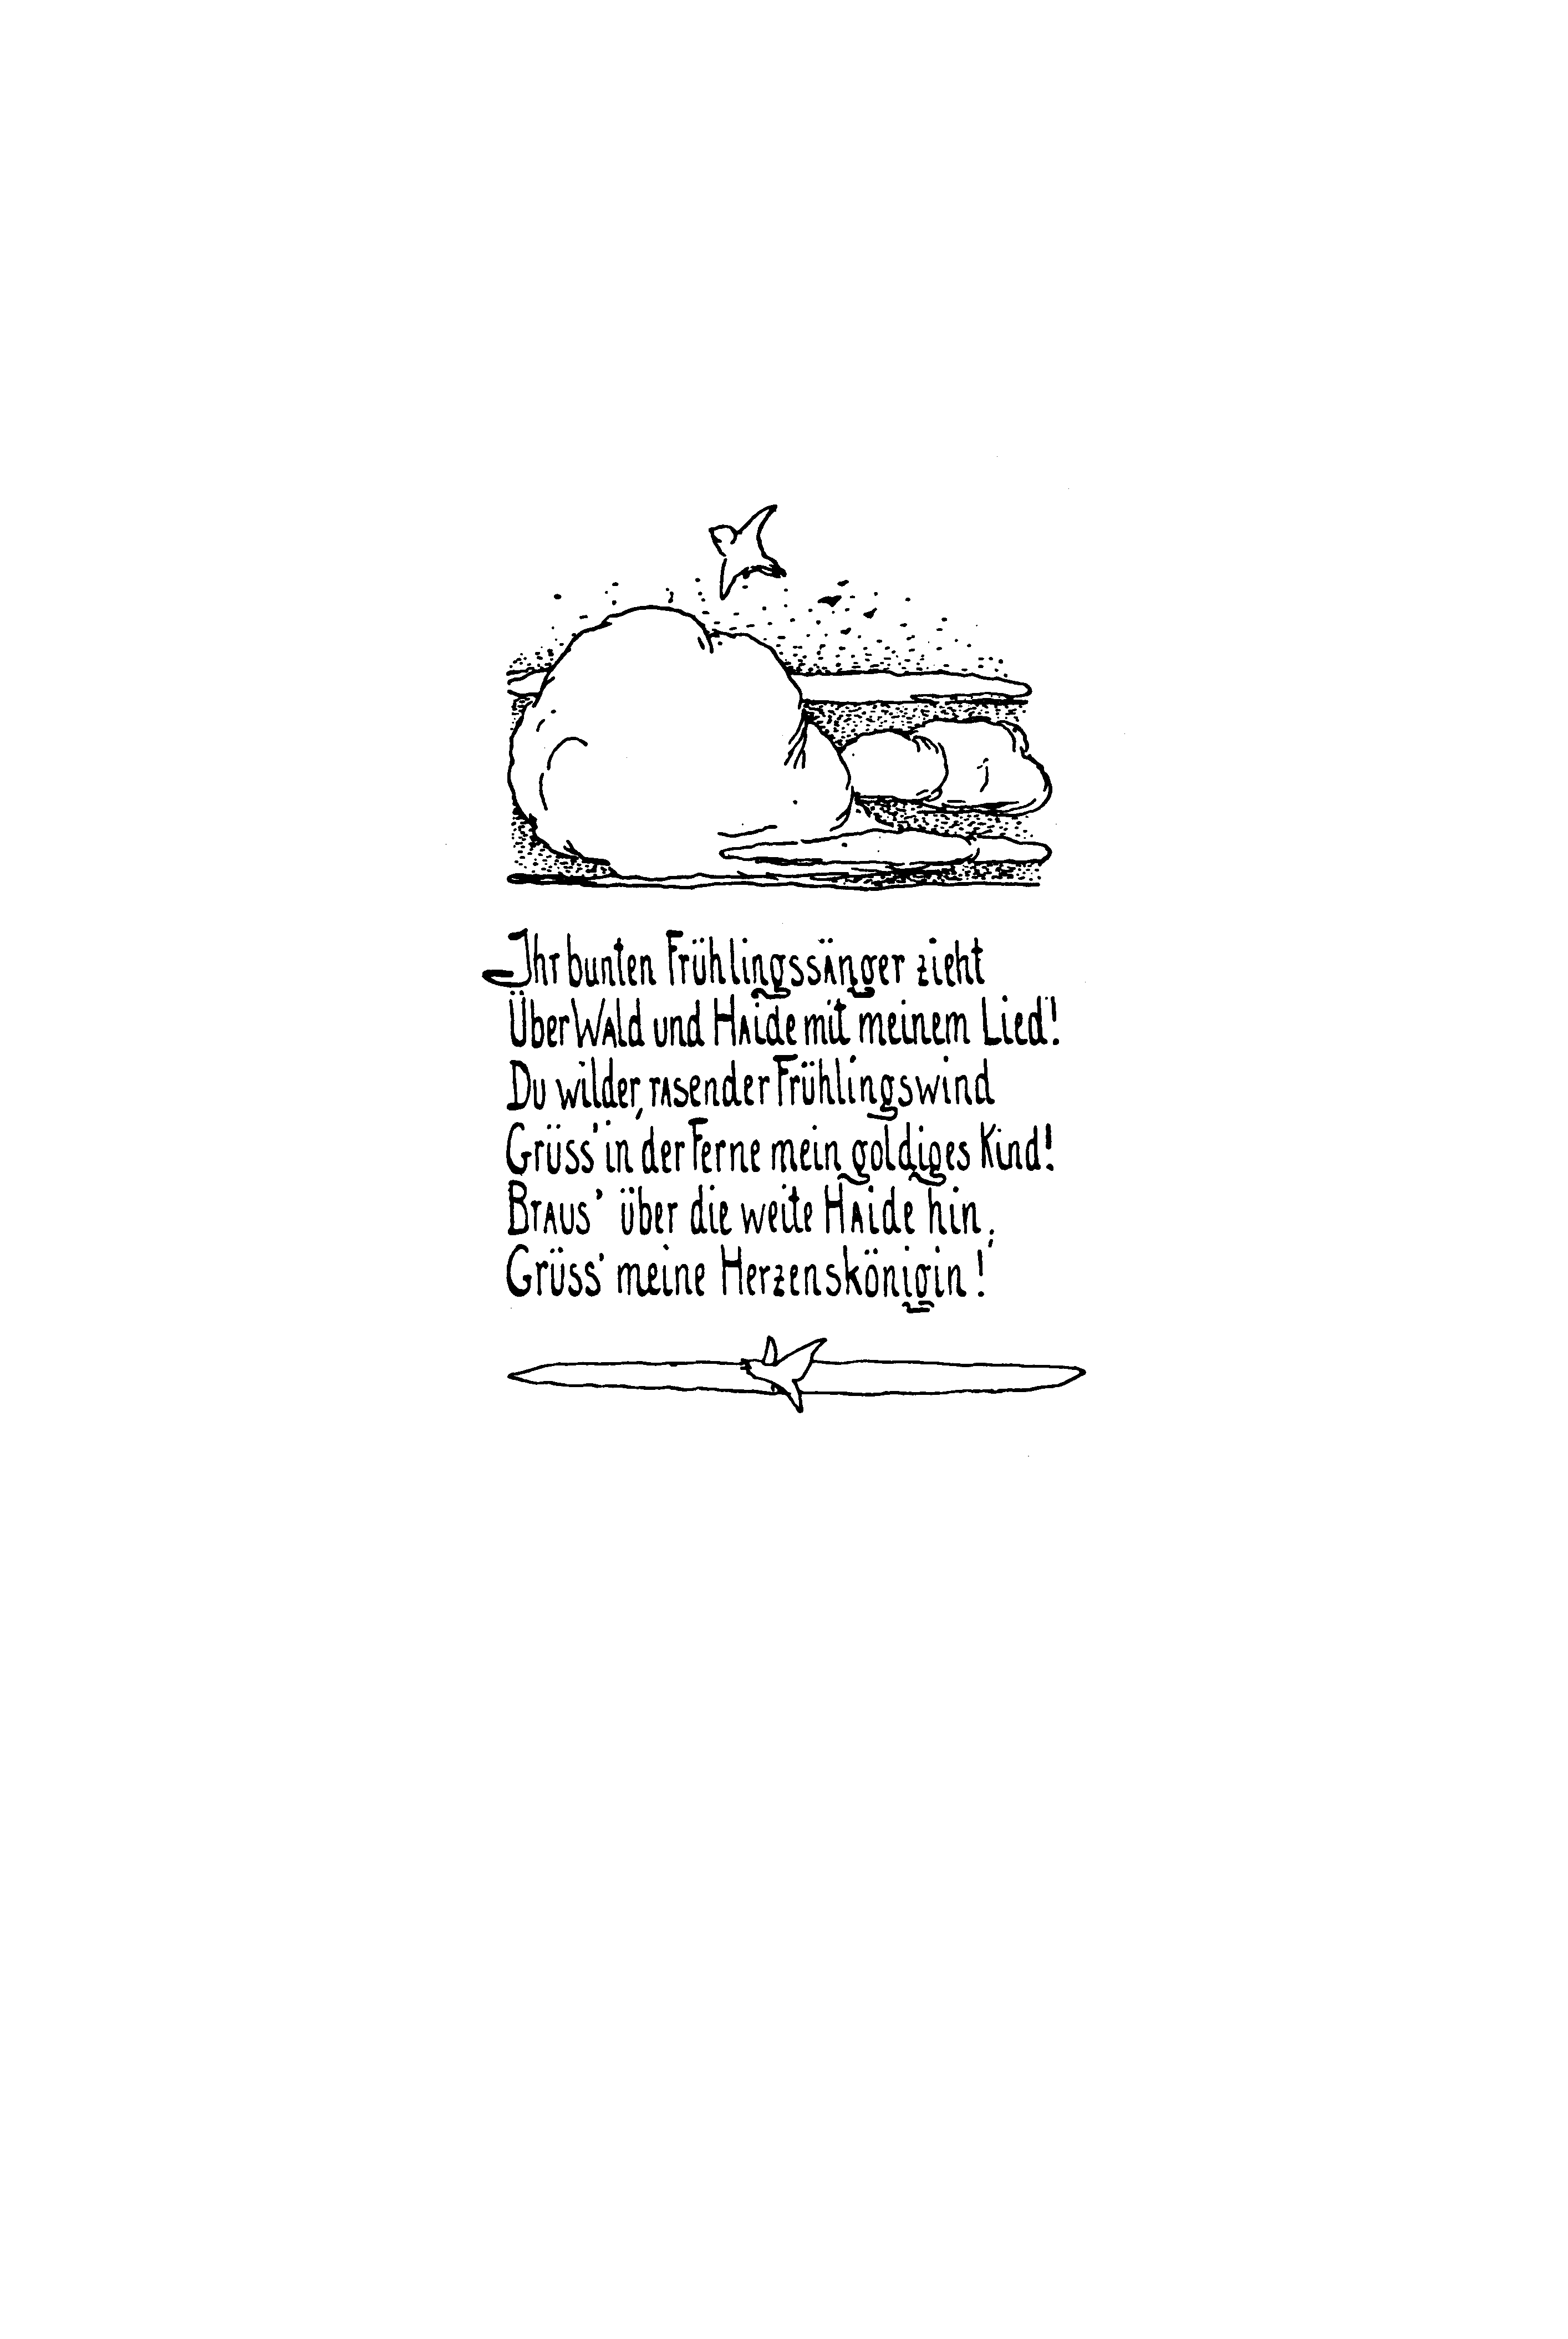 Ihr bunten Frühlingssänger zieht
Über Wald und Haide mit meinem Lied!
Du wilder, rasender Frühlingswind
Grüss' in der Ferne mein goldiges Kind!
Braus' über die weite Haide hin,
Grüss' meine Herzenskönigin!